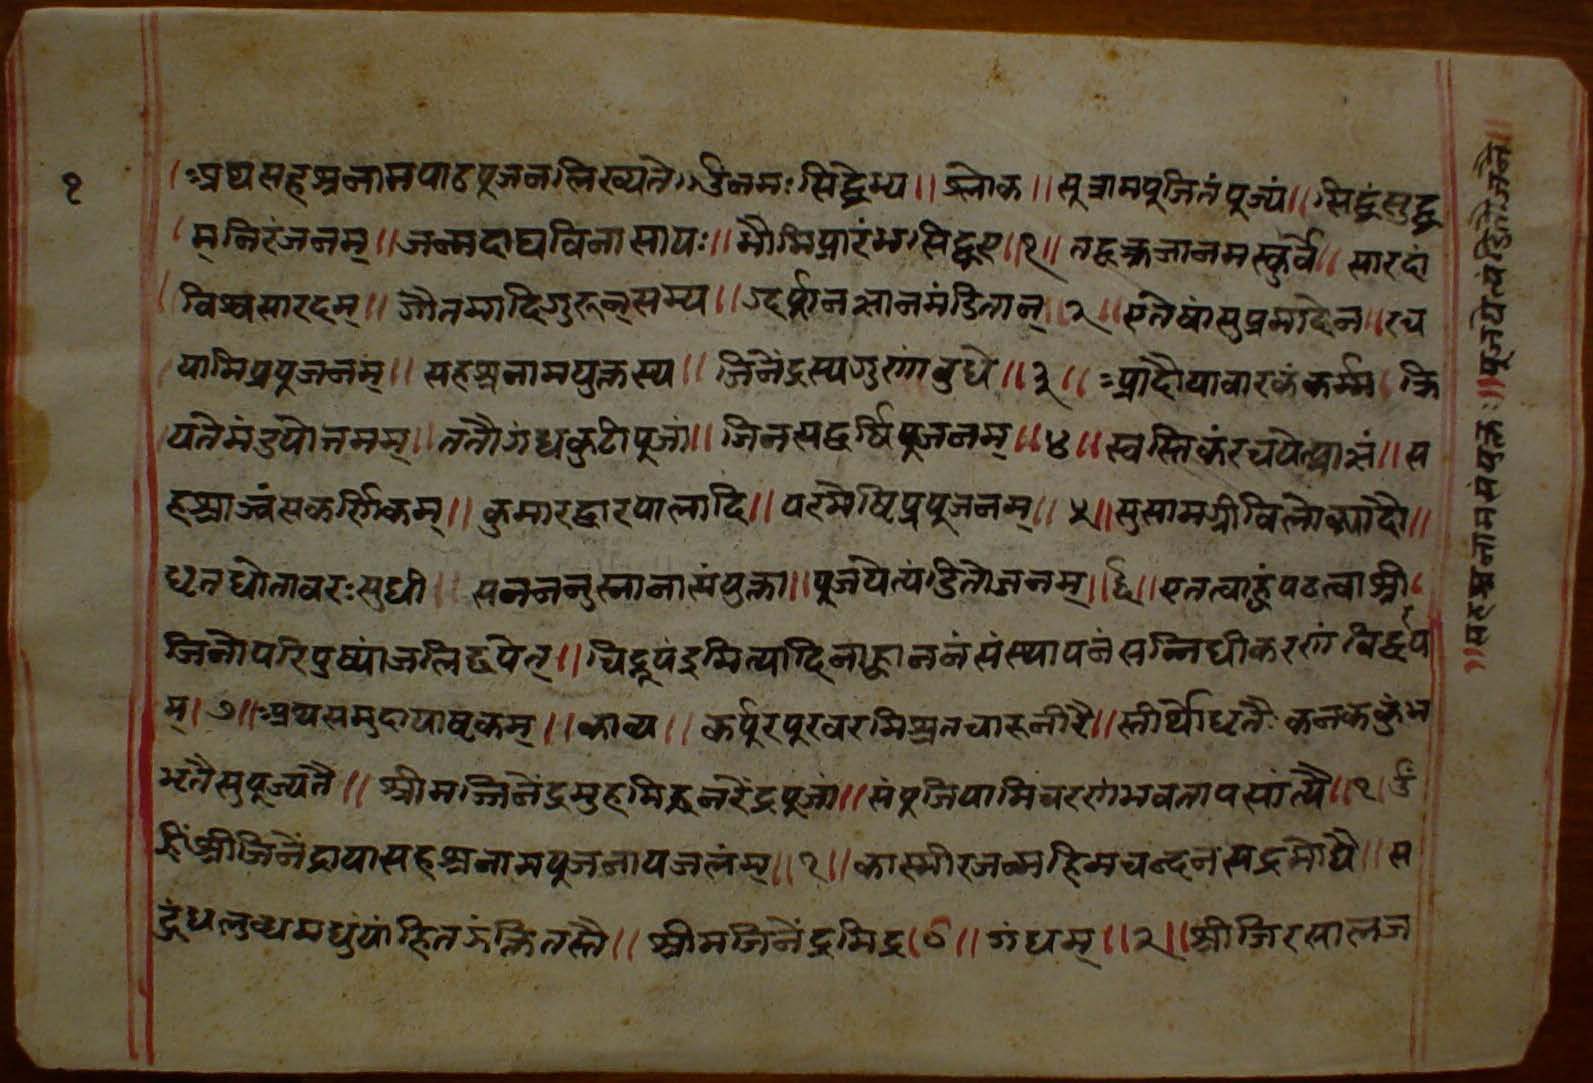 १
।अथसहश्रनामपाठपूजनलिख्यते ॐनमःसिद्धेभ्य॥श्लोक॥सूत्रामपूजितंपूज्यं॥सिद्धंसुद्ध
म्निरंजनम्॥जन्मदाघविनासायः॥नौमिप्रारंभसिद्धए॥१॥तद्वक्त्रजानमस्कुर्वे॥सारदां
विश्वसारदम्॥गौतमादिगुरून्सम्य॥ग्दर्ष्णनज्ञानमंडितान्२॥एतेषांसुप्रमादेन॥रच
यामिप्रपूजनंम्॥सहश्रनामयुक्तस्य॥जिनेंद्रस्यगुणंबुधे॥३॥अादौयावारकंकर्म्म क्रि
यतेमंडपोत्तमम्॥ततौगंधकुटीपूजां॥जिनसद्वर्षिपूजनम्॥४॥स्वस्तिकंरचयेत्प्राज्ञं॥स
हश्राज्वंसकर्णिकम्॥कुमारद्वारपालादि॥परमेष्टिप्रपूजनम्॥५॥सुसामग्रीविलोक्यादौ॥
धृतधोतावरःसुधी॥ पूजयेत्पंडितोजनम्॥६॥एतत्वाष्टुंपठत्वाश्री
जिनोपरिपुष्पांजलिद्वपेत्॥चिद्रूपंइमित्यादिनाह्वाननंसंस्थापनंसन्निधीकरणं
म्।७॥अथसमुदायाष्टकम्॥काव्य॥कर्पूरपूरवरमिश्रतचारूनीरै॥स्तीर्थोधृतैःकनककुंभ
भृतैसुपूज्यतै॥श्रीमज्जिनेंद्रमुहमिद्रनरेंद्रपूजां॥संपूजियामिंचरणंभवतापसांत्यै॥१।ॐ
ह्रिंश्रीजिनेंद्रायासहश्रनामपूजनायजलंम्॥१॥कास्मीरजन्महिमचन्दनसद्रमोघै॥स
द्गंधलुव्धमधुंपांहित श्रीमजिनेंद्रमिद्र।०॥गंधम्॥२॥श्रीजिरसालज
॥सहश्रनामसंयुक्तः॥पूजयेत्पंडितैजनै॥